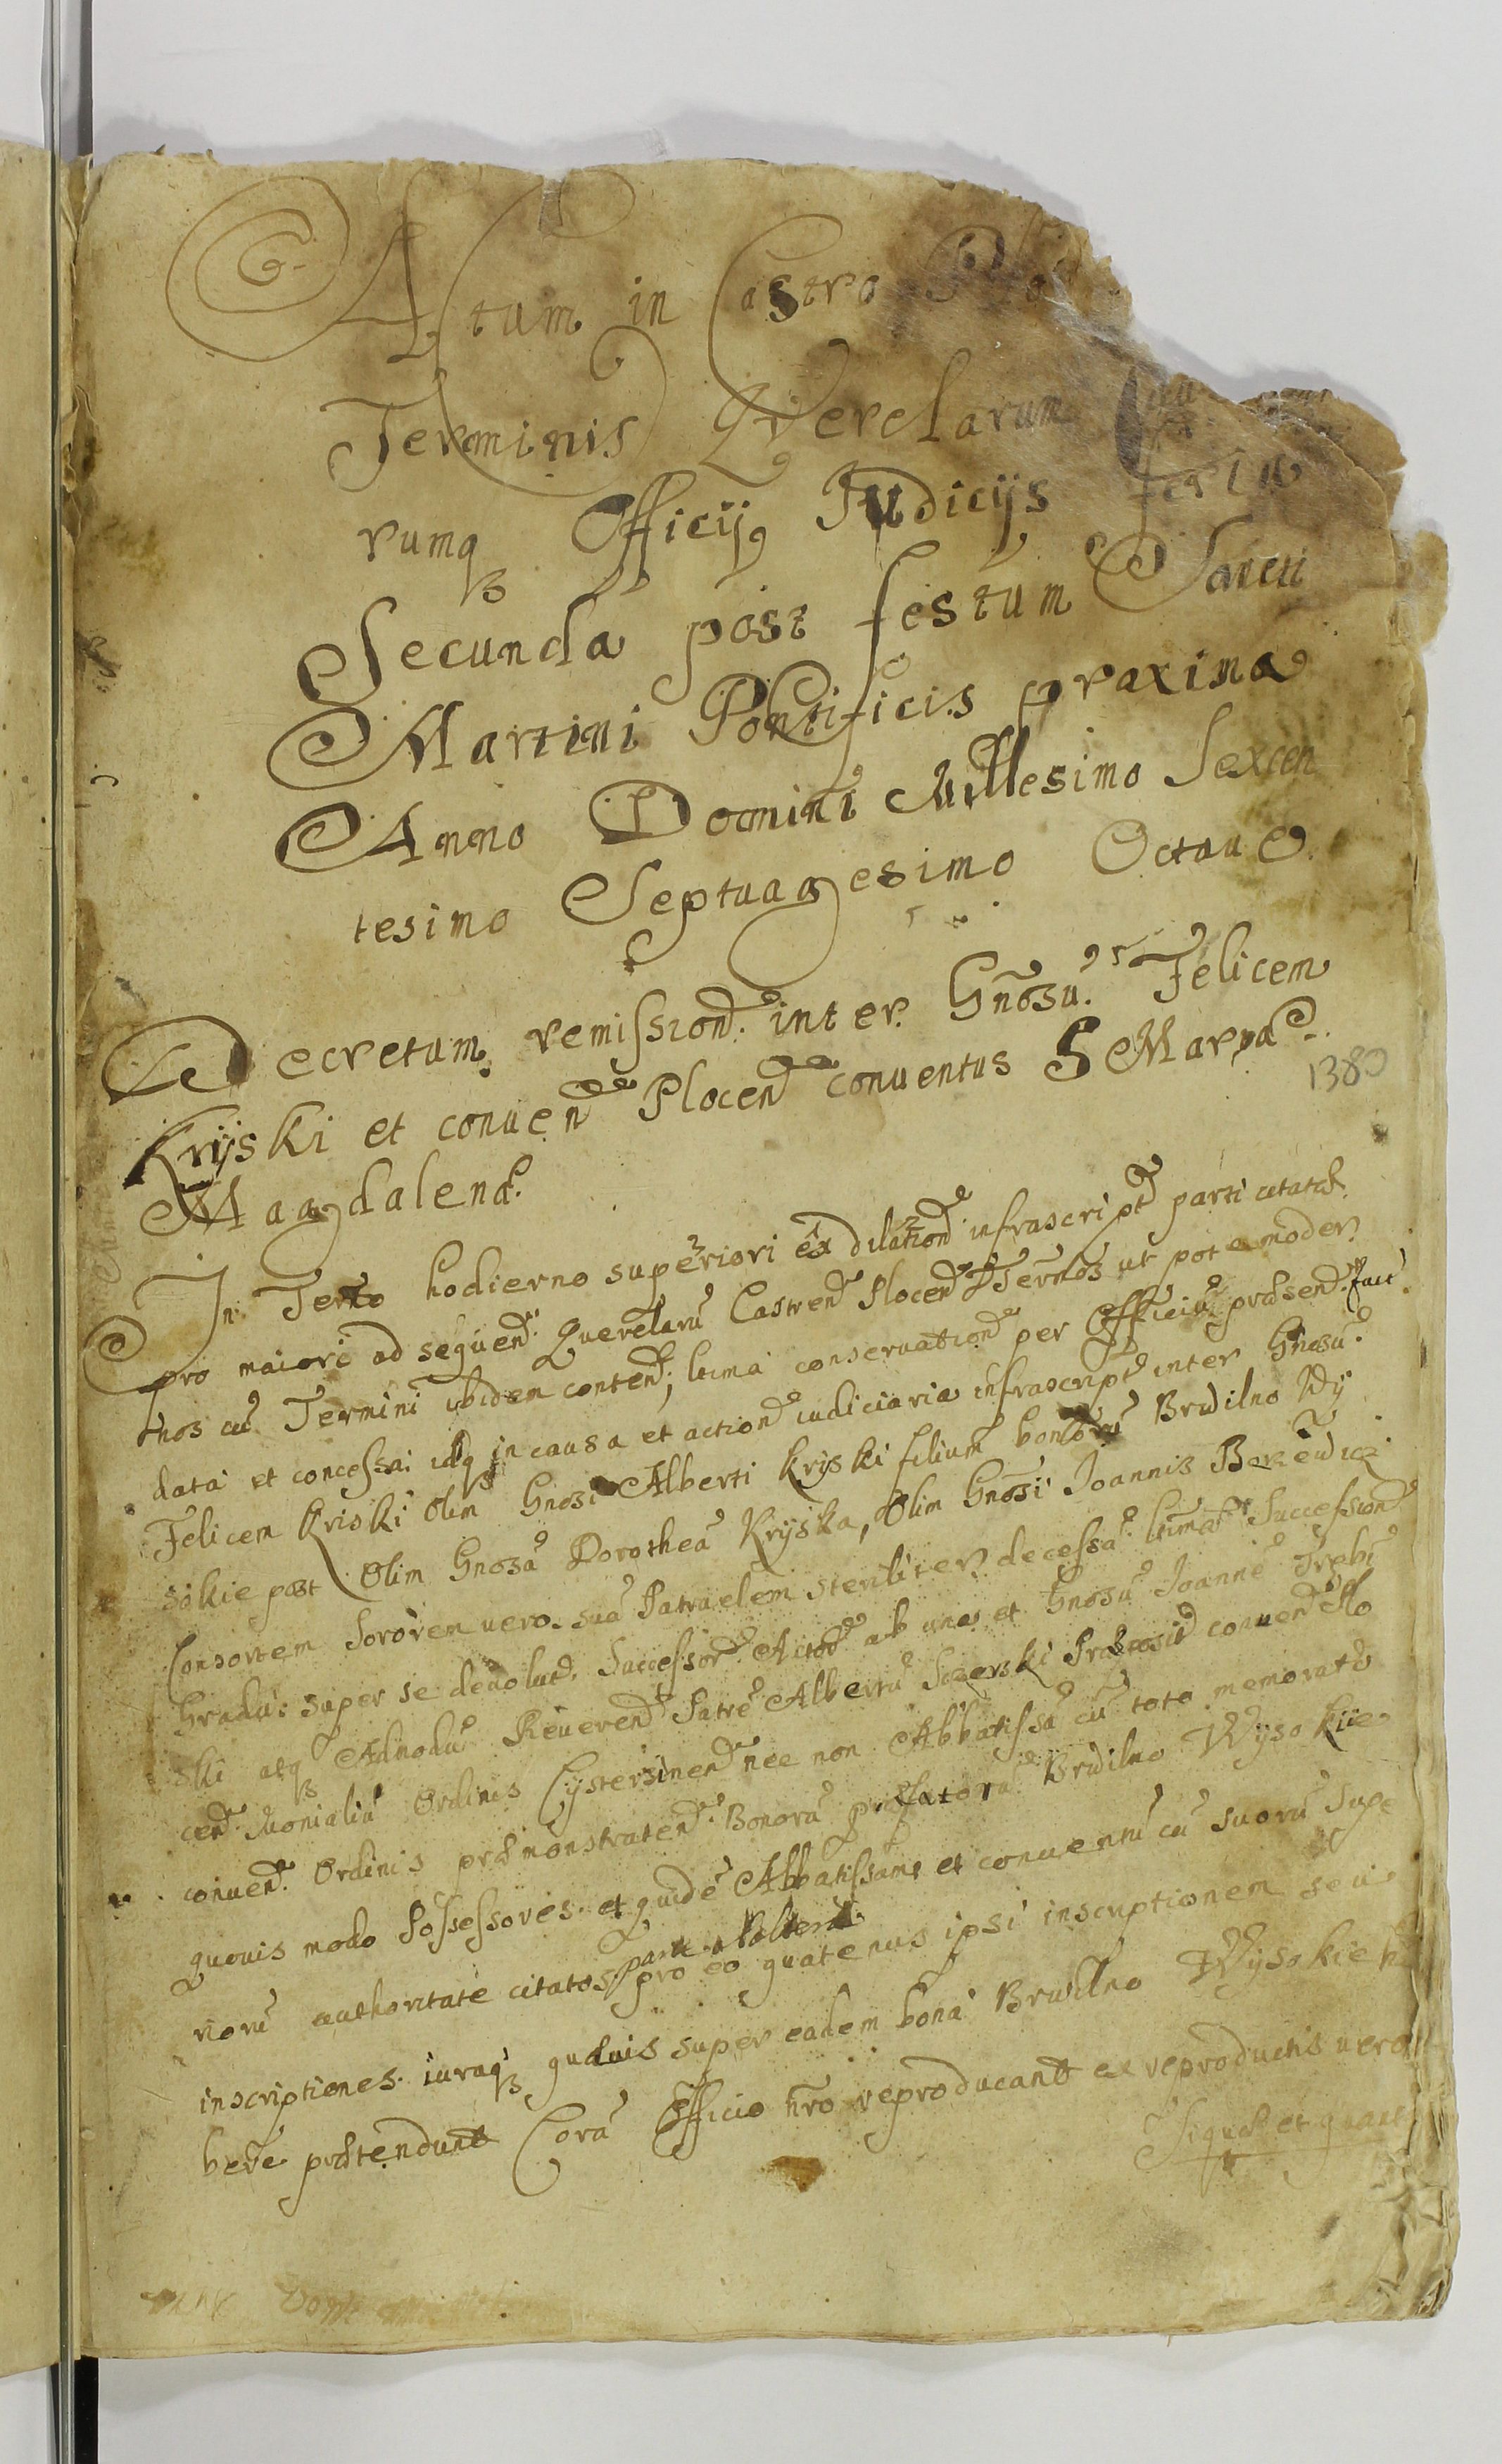 Actum in Castro
Terminis Querelarum
rumq Officij Judicijs feria
Secunda post festum Sancti
Martini Pontificis proxima
Anno Domini Millesimo Sexcen
tesimo Septuagesimo Octauo
Decretum remissionē inter Gnosū Felicem
Kryski et conuen Plocen conuentus S Maryæ
1380
Magdalenæ
In Termo hodierno superiori ex dilation infrascript parti citatæ
pro maiori ad sequen Querelarū Castren Plocen Termos ut pote moder
nos cū Termini ibidem conten, ltima conseruation per Officiū præsens
data et concessa idq in causa et action iudiciaria infrascript inter Gnosū
Felicem Kriski olim Gnosi Alberti Kryski filium bonorū Brudilno Wy
sokie post olim Gnosā Dorotheā Kryska, olim Gnosi Joannis
Consortem Sororem uero suā Patruelem steriliter decessā ltima Succession
Gradū super se deuolut Successorē Actorē ab una et Gnosū Joannē
ski atq Admodū Reueren Patrē Albertū Præposit conuen Plo
cen Monialiū Ordinis Cystersinen nec non Abbatissā cū toto memorato
conuen Ordinis præmonstraten Bonorū præfatorū Brudilno Wysokiie
quouis modo Possessores et quidē Abbatissam et conuentū cū suorū Supe
riorū authoritate citatos parte ab altera pro eo quatenus ipsi inscriptionem seu
inscriptiones iuraq quæuis super eadem bona Brudilno Wysokie ha
bere prætendunt Corā Officio nro reproducant ex reproductis uero
Siquæ et